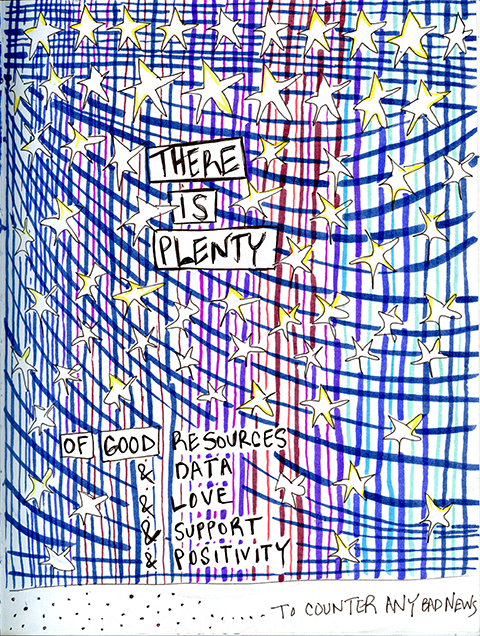 THERE
IS
PLENTY
OF GOOD RESOURCES
& DATA
& LOVE
& SUPPORT
& POSITIVITY
TO COUNTER ANY BAD NEWS